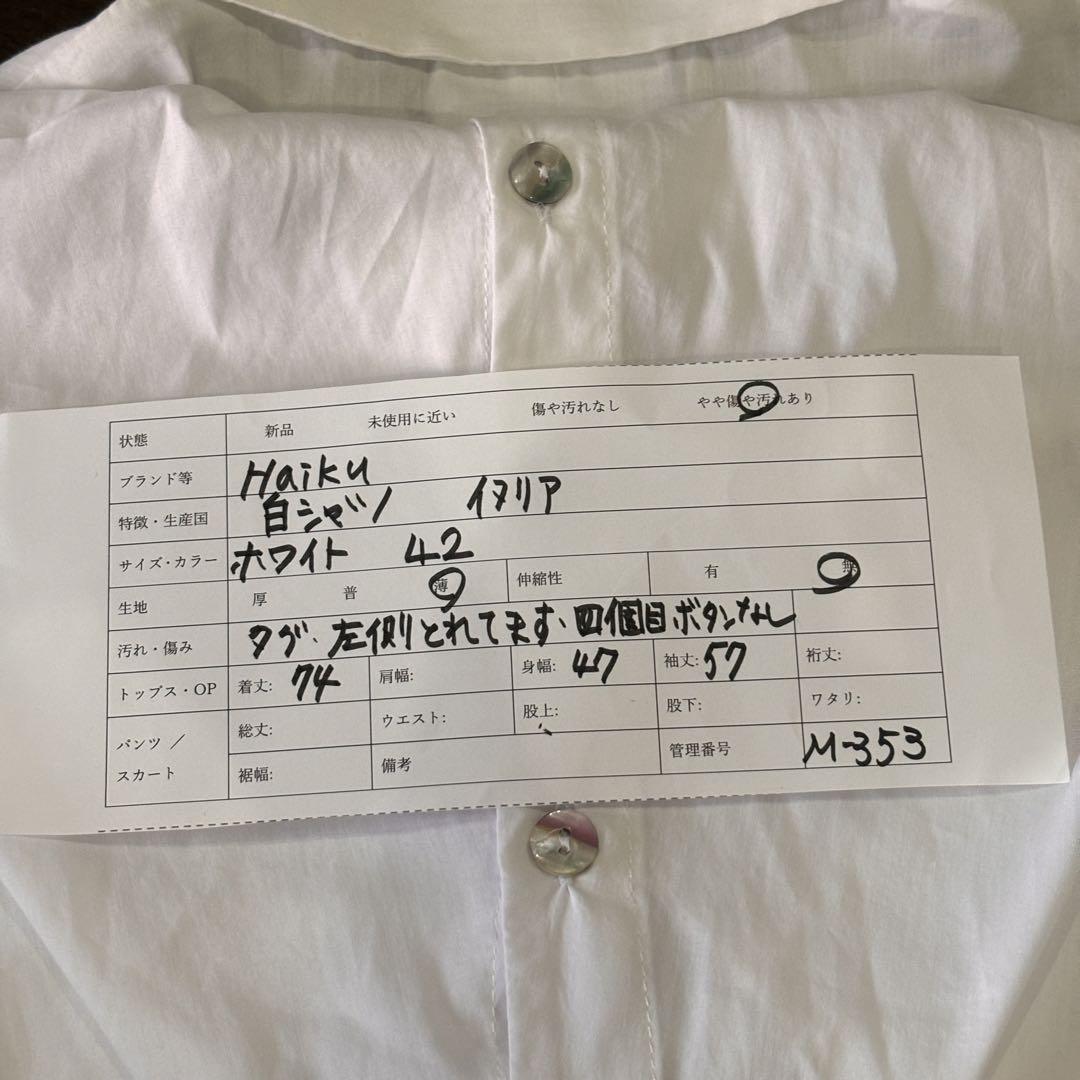 状態 新品 未使用に近い 傷や汚れなし やや傷や汚れあり
ブランド等 Haiku
特徴・生産国 白シャツ イタリア
サイズ・カラー ホワイト 42
生地 厚 普 薄 伸縮性 有 無
汚れ・傷み タグ、左側とれてます、四個目ボタンなし
トップス・OP 着丈: 74 肩幅: 身幅: 47 袖丈: 57 裄丈:
パンツ / スカート 総丈: ウエスト: 股上: 股下: ワタリ:
裾幅: 備考 管理番号 M-353